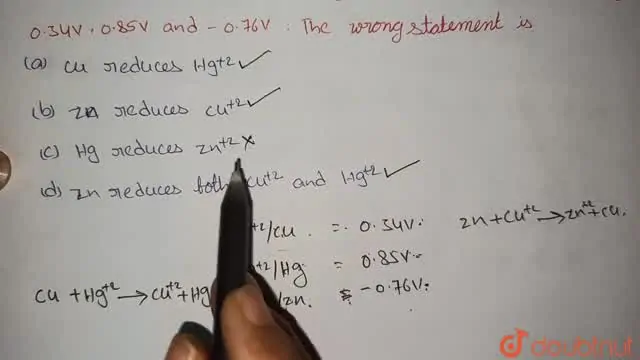 0.34V, 0.85V and -0.76V. The wrong statement is
(a) Cu reduces Hg+2 ✓
(b) Zn reduces Cu+2 ✓
(c) Hg reduces Zn+2 ×
(d) Zn reduces both Cu+2 and Hg+2 ✓
+2/Cu = 0.34V.
Zn + Cu+2 → Zn+2 + Cu.
+2/Hg = 0.85V.
Cu + Hg+2 → Cu+2 + Hg
/Zn. = -0.76V.
doubtnut